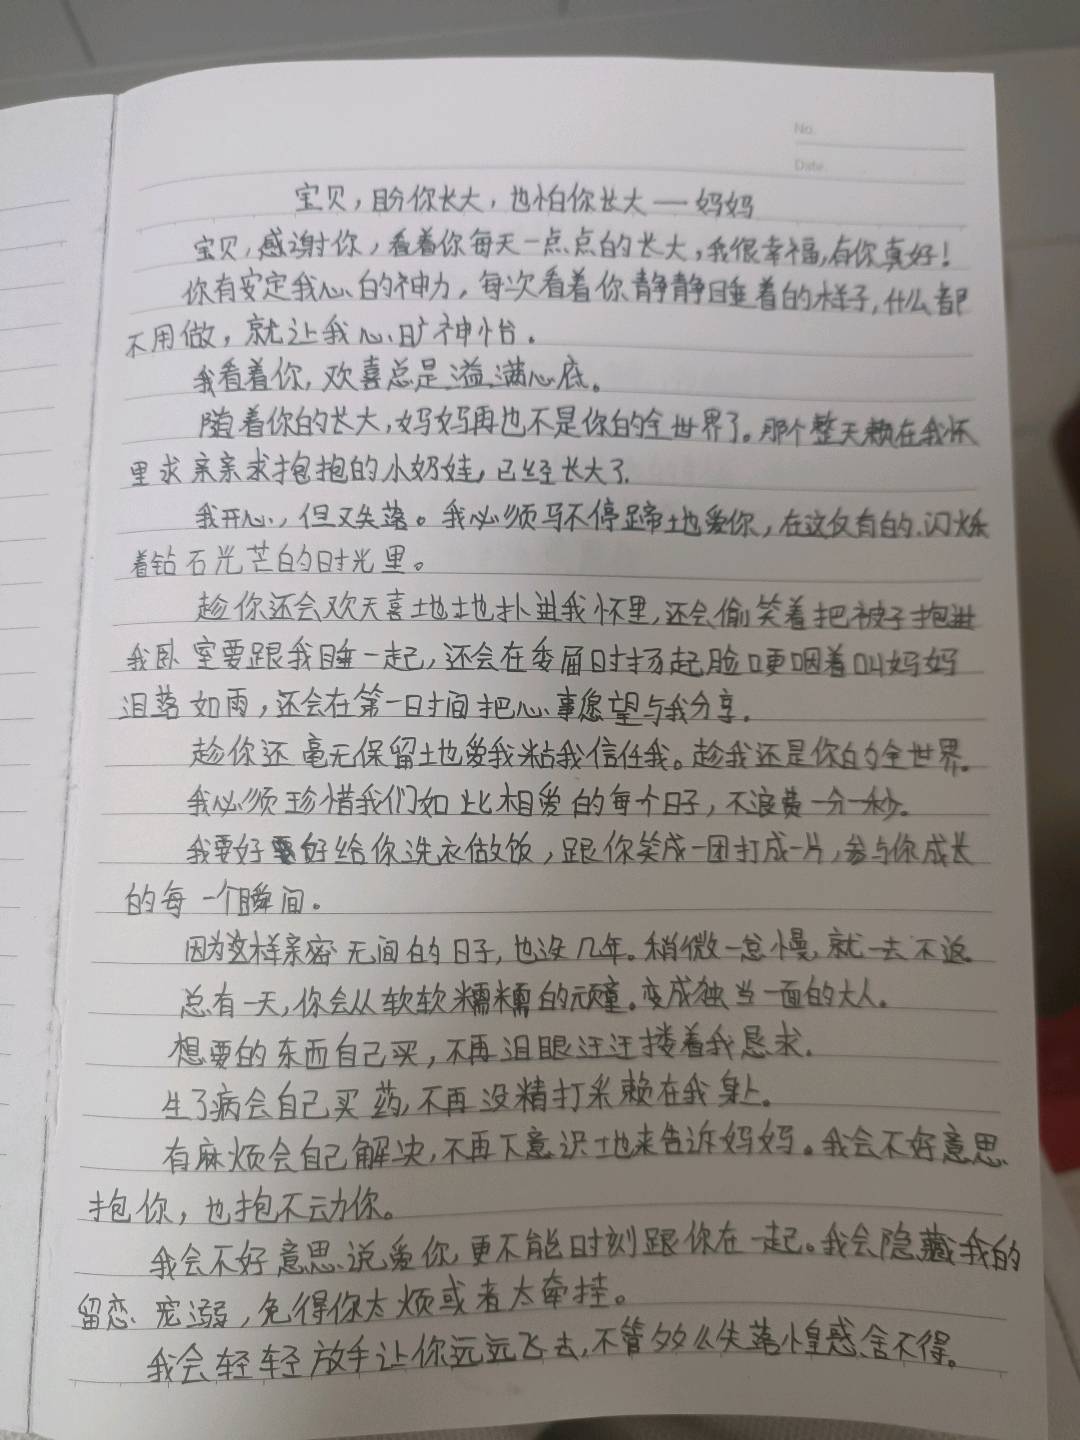 No.
Date.
宝贝，盼你长大，也怕你长大——妈妈
宝贝，感谢你，看着你每天一点点的长大，我很幸福，有你真好！
你有安定我心的神力，每次看着你静静睡着的样子，什么都
不用做，就让我心旷神怡。
我看着你，欢喜总是溢满心底。
随着你的长大，妈妈再也不是你的全世界了。那个整天赖在我怀
里求亲亲求抱抱的小奶娃，已经长大了.
我开心，但又失落。我必须马不停蹄地爱你，在这仅有的、闪烁
着钻石光芒的时光里。
趁你还会欢天喜地地扑进我怀里，还会偷笑着把被子抱进
我卧室要跟我睡一起，还会在委屈时扬起脸哽咽着叫妈妈
泪落如雨，还会在第一时间把心事愿望与我分享.
趁你还毫无保留地爱我粘我信任我。趁我还是你的全世界.
我必须珍惜我们如此相爱的每个日子，不浪费一分一秒。
我要好好给你洗衣做饭，跟你笑成一团打成一片，参与你成长
的每一个瞬间。
因为这样亲密无间的日子，也没几年。稍微一怠慢，就一去不返.
总有一天，你会从软软糯糯的顽童。变成独当一面的大人.
想要的东西自己买，不再泪眼汪汪搂着我恳求.
生了病会自己买药，不再没精打采赖在我身上.
有麻烦会自己解决，不再下意识地来告诉妈妈。我会不好意思
抱你，也抱不动你。
我会不好意思说爱你，更不能时刻跟你在一起。我会隐藏我的
留恋、宠溺，免得你太烦或者太牵挂。
我会轻轻放手让你远远飞去，不管多么失落惶惑舍不得。